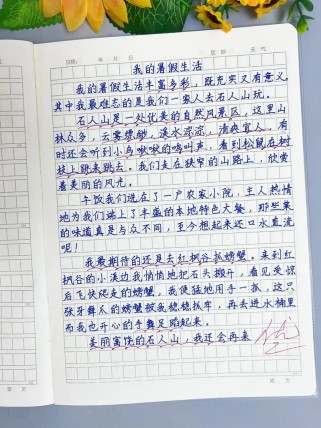 日期: 年 月 日 星期 天气
我的暑假生活
我的暑假生活丰富多彩，既充实又有意义。
其中我最难忘的是我们一家人去石人山玩。
石人山是一处优美的自然风景区，这里山
林众多，云雾缥缈，溪水凉凉，清爽宜人，有
时还会听到小鸟啾啾的鸣叫声，看到松鼠在树
枝上跳来跳去。我们走在狭窄的山路上，欣赏
着美丽的风光。
午饭我们进在了一户农家小院，主人热情
地为我们端上了丰盛的本地特色大餐，那些菜
的味道真是与众不同，至今想起来还口水直流
呢！
我最期待的还是去红枫谷抓螃蟹。来到红
枫谷的小溪边我悄悄地把石头搬开，看见受惊
后飞快爬走的螃蟹，我便猛地用手一抓，这只
张牙舞爪的螃蟹被我稳稳抓牢，再丢进水桶里
而我也开心的手舞足蹈起来。
美丽富饶的石人山，我还会再来
优